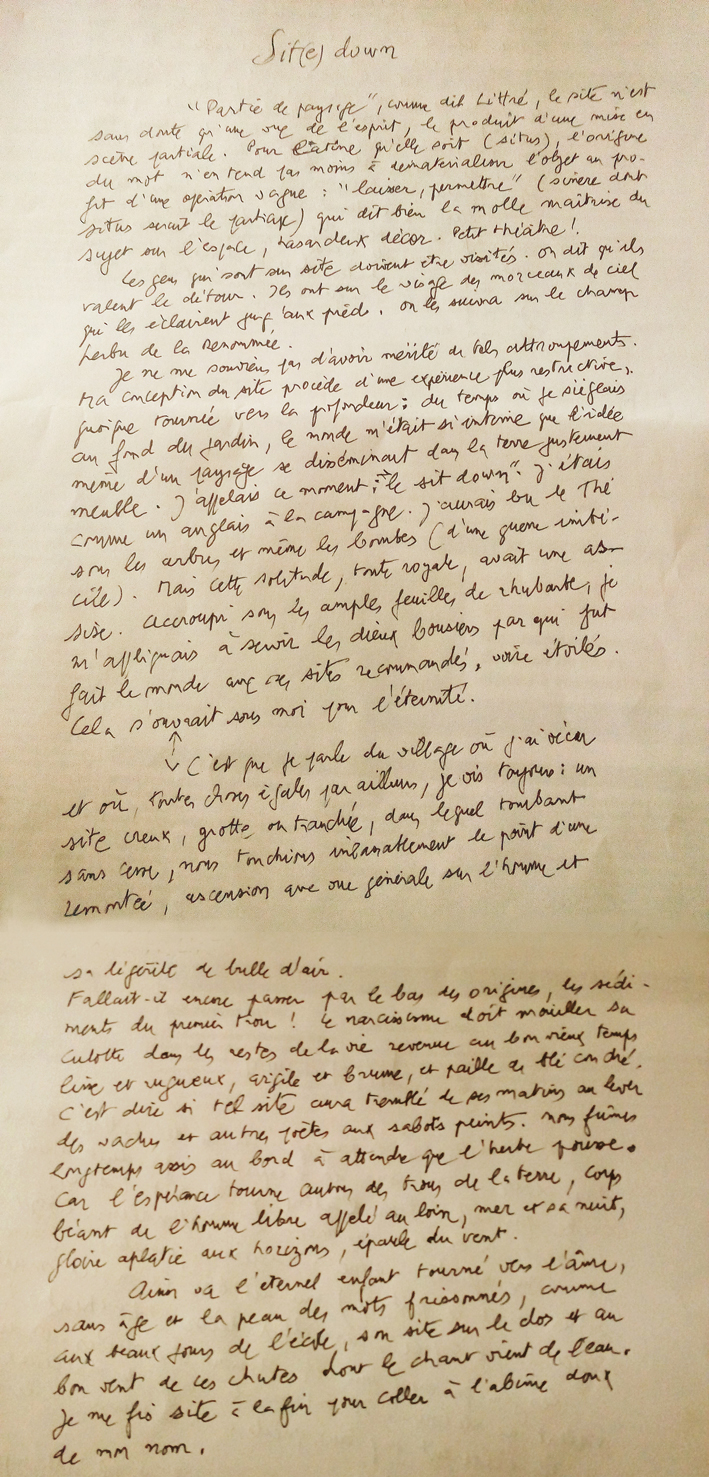 Sit(e) down
"Partie de paysage", comme dit Littré, le site n'est
sans doute qu'une vue de l'esprit, le produit d'une mise en
scène partiale. Pour qu'elle soit (situs), l'origine
du mot n'en tend pas moins à dématérialiser l'objet au pro-
fit d'une opération vague : "laisser, permettre" (sinere dont
situs serait le participe) qui dit bien la molle maîtrise du
sujet sur l'espace, hasardeux décor. Petit théâtre !
Les gens qui sont sur site doivent être visités. On dit qu'ils
valent le détour. Ils ont sur le visage des morceaux de ciel
qui les éclairent jusqu'aux pieds. On les suivra sur le champ
herbu de la Renommée.
Je ne me souviens pas d'avoir mérité de tels attroupements.
Ma conception du site procède d'une expérience plus restrictive,
quoique tournée vers la profondeur : du temps où je siégeais
au fond du jardin, le monde m'était si interne que l'idée
même d'un paysage se disséminait dans la terre justement
meuble. J'appelais ce moment : "le sit down". J'étais
comme un anglais à la campagne. J'aurais bu le Thé
sous les arbres et même les bombes (d'une guerre imbé-
cile). Mais cette solitude, toute royale, avait une as-
sise. Accroupi sous les amples feuilles de rhubarbe, je
m'appliquais à servir les dieux bousiers par qui fut
fait le monde avec ses sites recommandés, voire étoilés.
Cela s'ouvrait sous moi pour l'éternité.
C'est que je parle du village où j'ai vécu
et où, toutes choses égales par ailleurs, je vis toujours : un
site creux, grotte ou tranchée, dans lequel tombant
sans cesse, nous touchions inlassablement le point d'une
remontée, ascension avec vue générale sur l'homme et
sa légèreté de bulle d'air.
Fallait-il encore passer par le bas des origines, les sédi-
ments du premier trou ! Le narcissisme doit mouiller sa
culotte dans les restes de la vie revenue au bon vieux temps
lisse et rugueux, argile et brume, et paille de blé
C'est dire si tel site aura tremblé de ses matins au lever
des vaches et autres poètes aux sabots peints. Nous fûmes
longtemps assis au bord à attendre que l'herbe pousse.
Car l'espérance tourne autour des trous de la terre, corps
béant de l'homme libre appelé au loin, mer et sa nuit,
gloire aplatie aux horizons, épaule du vent.
Ainsi va l'éternel enfant tourné vers l'âme,
sans âge et la peau des mots frissonnés, comme
aux beaux jours de l'école, son site sur le dos et au
bon vent de ces chutes dont le chant vient de l'eau.
Je me fis site à la fin pour coller à l'abîme doux
de mon nom.